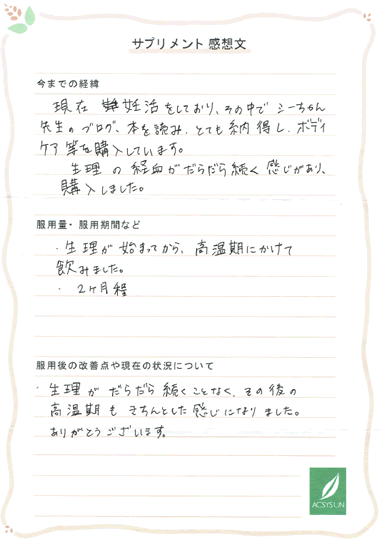 サプリメント 感想文
今までの経緯
現在 妊活をしており、その中で シーちゃん
先生の ブログ、本を読み、とても 納得し、ボディ
ケア 等を購入しています。
生理 の 経血が だらだら 続く 感じがあり、
購入しました。
服用量・服用期間など
・生理が 始まってから、高温期にかけて
飲みました。
・2ヶ月 程
服用後の改善点や現在の状況について
・生理 が だらだら 続くことなく、その後の
高温期も きちんとした 感じになりました。
ありがとうございます。
ACSYSUN